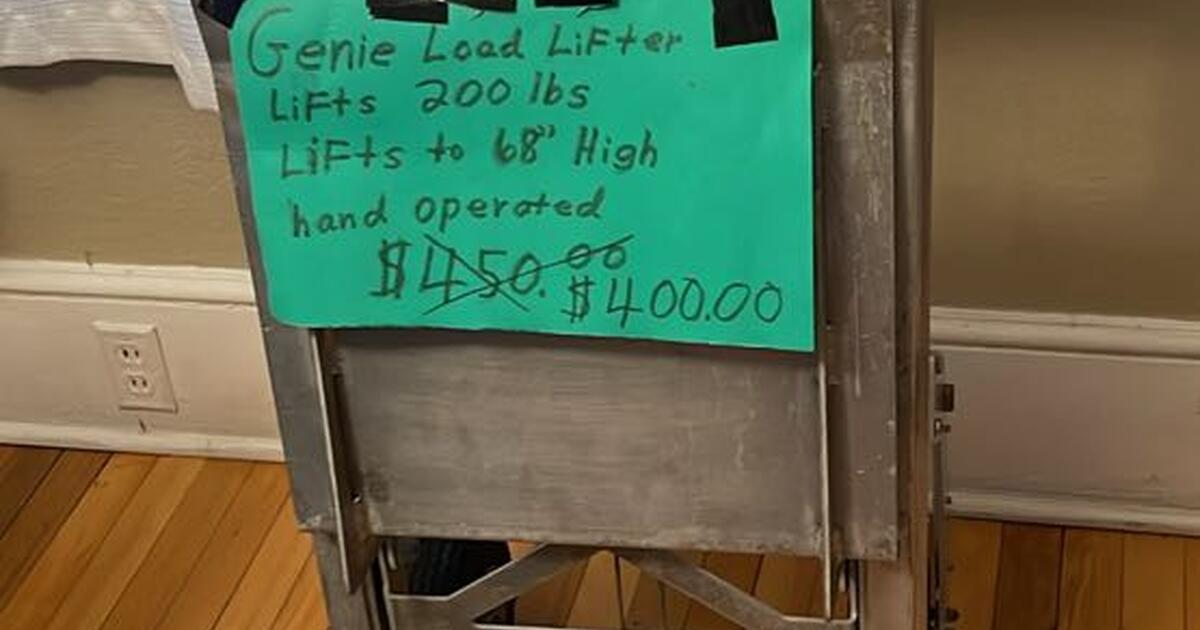 Genie Load Lifter
Lifts 200 lbs
Lifts to 68" High
hand operated
$450.00
$400.00